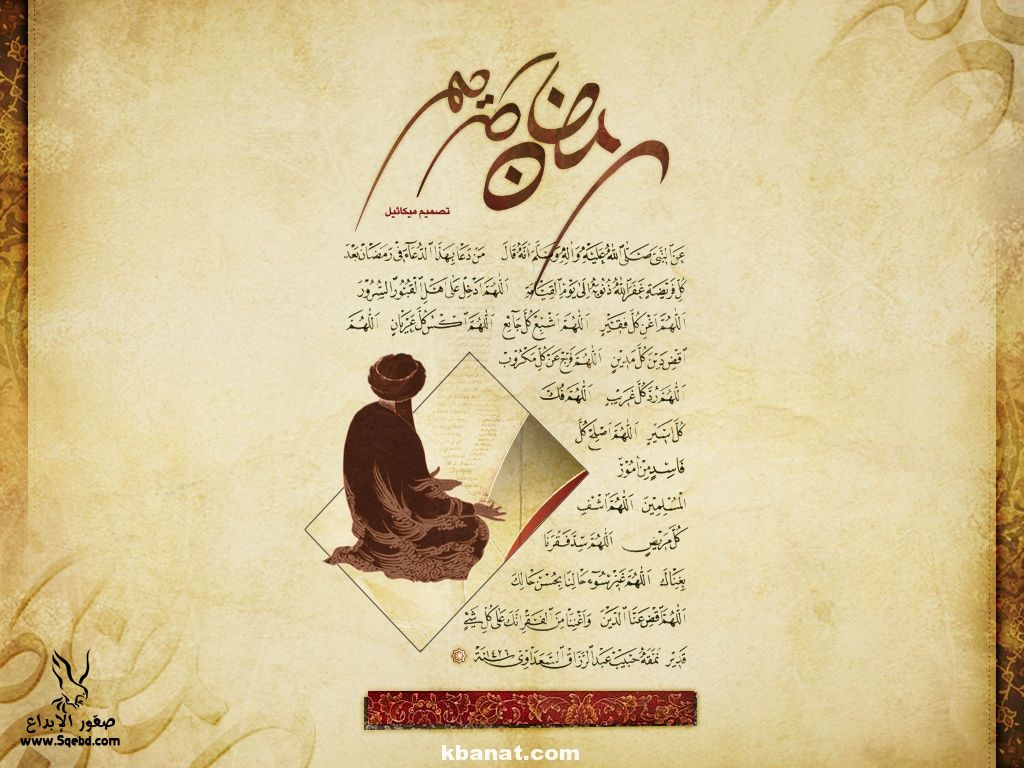 رمضان كريم
تصميم ميكائيل
عَنِ النَّبِي صَلَّى اللهُ عَلَيْهِ وَآلِهِ وَسَلَّمَ أَنَّهُ قَالَ مَنْ دَعَا بِهَذَا الدُّعَاءِ فِي رَمَضَانَ بَعْدَ
كُلِّ فَرِيضَةٍ غَفَرَ اللهُ ذُنُوبَهُ إِلَى يَوْمِ الْقِيَامَةِ اَللَّهُمَّ أَدْخِلْ عَلَى أَهْلِ الْقُبُورِ السُّرُورَ
اَللَّهُمَّ أَغْنِ كُلَّ فَقِيرٍ اَللَّهُمَّ أَشْبِعْ كُلَّ جَائِعٍ اَللَّهُمَّ اكْسُ كُلَّ عُرْيَانٍ اَللَّهُمَّ
اقْضِ دَيْنَ كُلِّ مَدِينٍ اَللَّهُمَّ فَرِّجْ عَنْ كُلِّ مَكْرُوبٍ
اَللَّهُمَّ رُدَّ كُلَّ غَرِيبٍ اَللَّهُمَّ فُكَّ
كُلَّ أَسِيرٍ اَللَّهُمَّ أَصْلِحْ كُلَّ
فَاسِدٍ مِنْ أُمُورِ
الْمُسْلِمِينَ اَللَّهُمَّ اشْفِ
كُلَّ مَرِيضٍ اَللَّهُمَّ سُدَّ فَقْرَنَا
بِغِنَاكَ اَللَّهُمَّ غَيِّرْ سُوءَ حَالِنَا بِحُسْنِ حَالِكَ
اَللَّهُمَّ اقْضِ عَنَّا الدَّيْنَ وَأَغْنِنَا مِنَ الْفَقْرِ إِنَّكَ عَلَى كُلِّ شَيْءٍ
قَدِير نمقه حبيب عبد الرزاق السعداوي سنة ١٤٢٦
صقور الإبداع
www.Sqebd.com
kbanat.com